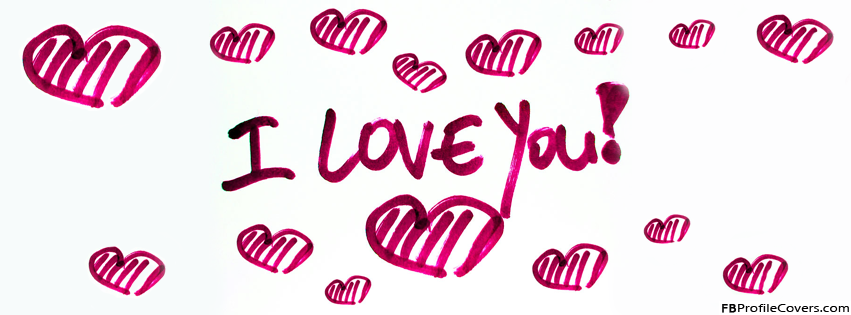 I LOVE You!
FBProfileCovers.com